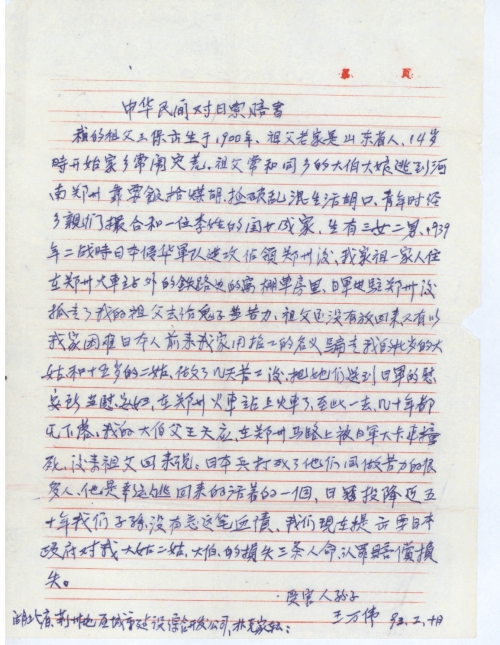 第 頁
中华民间对日索赔書
我的祖父王保 生于1900年，祖父老家是山东省人，14岁
時开始家乡常闹灾荒。祖父常和同乡的大伯大娘逃到河
南郑州靠要飯拾煤胡，捡破乱混生活胡口，青年时经
乡親们撮合和一位李姓的闺女成家，生有三女二男，1939
年二战時日本侵华軍队進攻佔领郑州後，我家祖一家人住
在郑州火車站外的鉄路边的窩棚草房里，日軍进驻郑州後
抓走了我的祖父去给鬼子当苦力，祖父还没有放回来又有
我家 日本人前来我家用招工的名义骗走我的 岁的大
姑和十五岁的二姑，做了几天苦工後，把她们送到日軍的慰
安所当慰安妇，在郑州火車站上火車了，至此一去，几十年都
无下落。我的大伯父王天应，在郑州马路上被日軍大卡車撞
死，後来祖父回来说，日本兵打死了他们同做苦力的很
多人，他是幸运逃回来的活着的一個，日 投降近五
十年我们子孫没有忘这笔血債，我们现在提出要日本
政府对我大姑二姑、大伯、的损失三条人命，认罪賠償损
失。
受害人孙子
湖北省荆州地区城市建设综合开发公司， 王万伟 93.2.10日